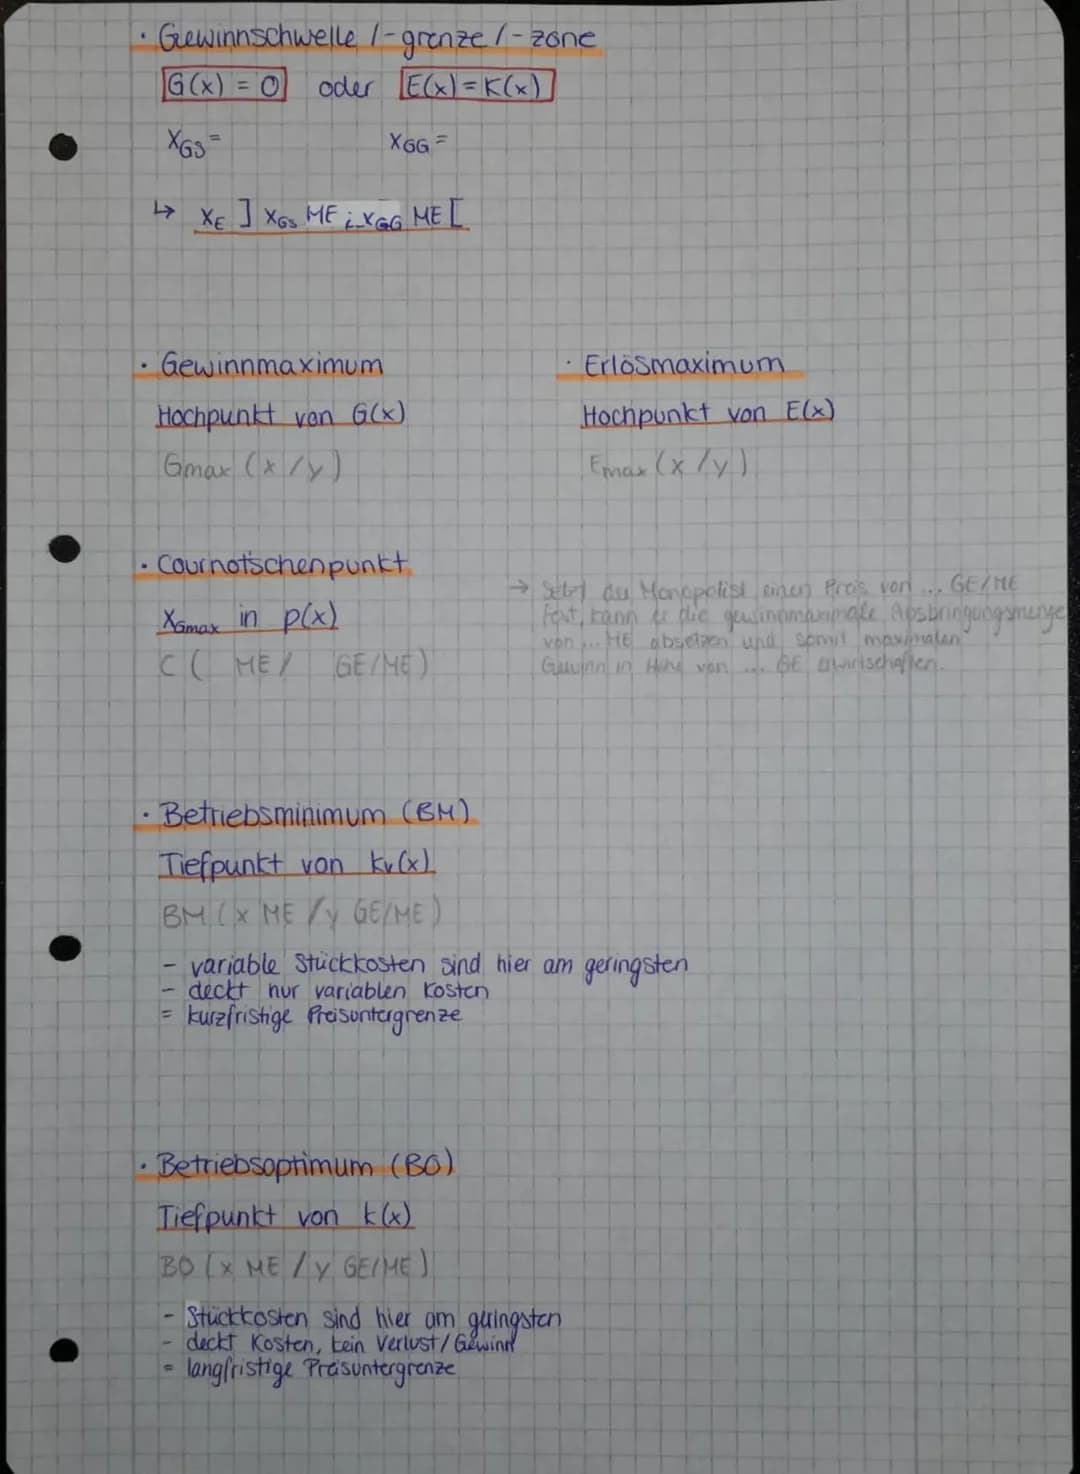 · Gewinnschwelle /-grenze /-zone
G(x) = 0 oder E(x) = K(x)
xGS = xGG =
↳ xE ] xGS ME ; xGG ME [
· Gewinnmaximum
Hochpunkt von G(x)
Gmax (x / y)
· Erlösmaximum
Hochpunkt von E(x)
Emax (x / y)
· Cournotschenpunkt
xGmax in p(x)
C ( ME / GE/ME)
→ Setzt der Monopolist einen Preis von ... GE/ME
fest, kann er die gewinnmaximale Absbringungsmenge
von ... ME absetzen und somit maximalen
Gewinn in Höhe von ... GE erwirtschaften.
· Betriebsminimum (BM)
Tiefpunkt von kv(x)
BM (x ME / y GE/ME)
- variable Stückkosten sind hier am geringsten
- deckt nur variablen Kosten
= kurzfristige Preisuntergrenze
· Betriebsoptimum (BO)
Tiefpunkt von k(x)
BO (x ME / y GE/ME)
- Stückkosten sind hier am geringsten
- deckt Kosten, kein Verlust/Gewinn
= langfristige Preisuntergrenze